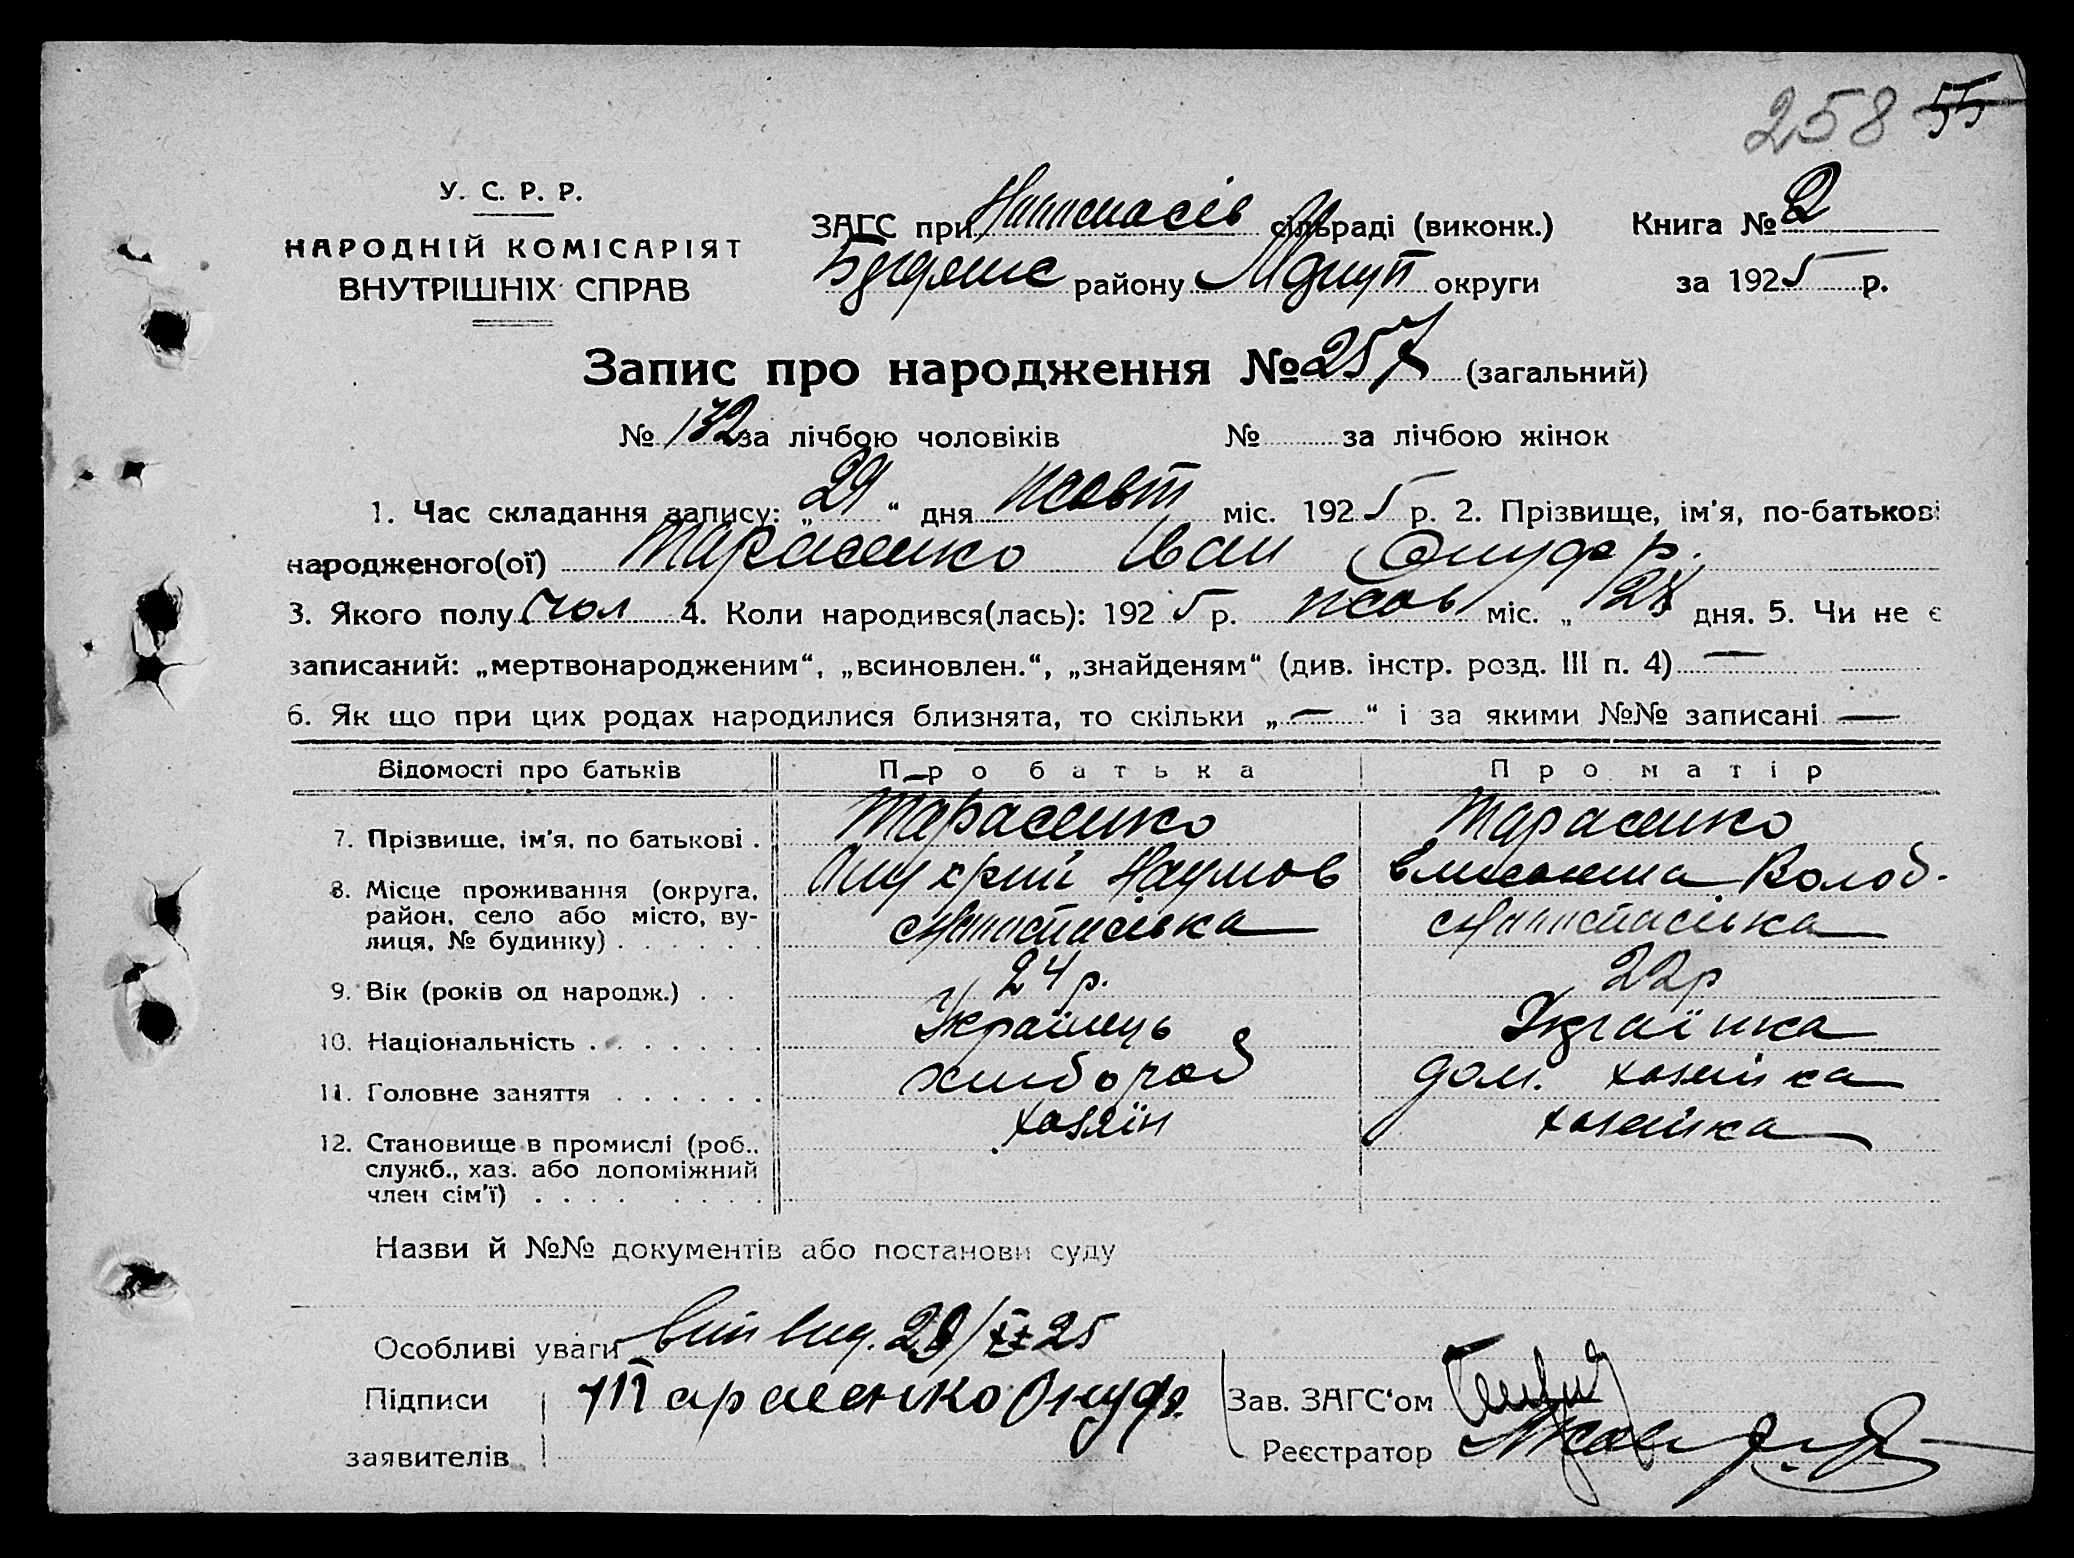 258 55
У. С. Р. Р.
НАРОДНІЙ КОМІСАРІЯТ
ВНУТРІШНІХ СПРАВ
ЗАГС при сільраді (виконк.) Книга № 2
району округи за 1925 р.
Запис про народження № 257 (загальний)
№ 132 за лічбою чоловіків № за лічбою жінок
1. Час складання запису: „29“ дня жовт міс. 1925 р. 2. Прізвище, ім'я, по-батькові
народженого(ої) Тарасенко Іван Онуфр.
3. Якого полу чол 4. Коли народився(лась): 1925 р. жов міс. „ дня. 5. Чи не є
записаний: „мертвонародженим“, „всиновлен.“, „знайденям“ (див. інстр. розд. III п. 4) —
6. Як що при цих родах народилися близнята, то скільки „—“ і за якими №№ записані —
Відомості про батьків Про батька Про матір
7. Прізвище, ім'я, по батькові . Тарасенко Тарасенко
Онуфрий Наумов Волод.
8. Місце проживання (округа,
район, село або місто, ву-
лиця, № будинку) . . . . . .
9. Вік (років од народж.) . . 24 р. 22 р
10. Національність . . . . . . . Українець Українка
11. Головне заняття . . . . . . хлібороб дом. хозяйка
12. Становище в промислі (роб., хозяїн хозяйка
служб., хаз. або допоміжний
член сім'ї) . . . . . . . . .
Назви й №№ документів або постанови суду
Особливі уваги
Підписи Тарасенко Онуфр. Зав. ЗАГС'ом
заявителів Реєстратор